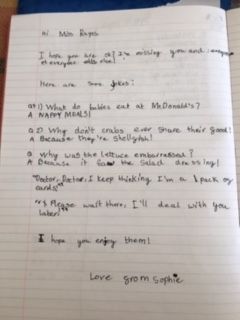 Hi Miss Rayes
I hope you are ok? I'm missing you and
everyone else!
Here are some jokes!
Q 1) What do babies eat at McDonald's?
A NAPPY MEALS!
Q 2) Why don't crabs ever share their food!
A Because they're shellfish!
Q Why was the lettuce embarrassed?
A Because it saw the salad dressing!
"Doctor, Doctor, I keep thinking I'm a pack of
cards!"
"Please wait there, I'll deal with you
later!"
I hope you enjoy them!
Love from Sophie